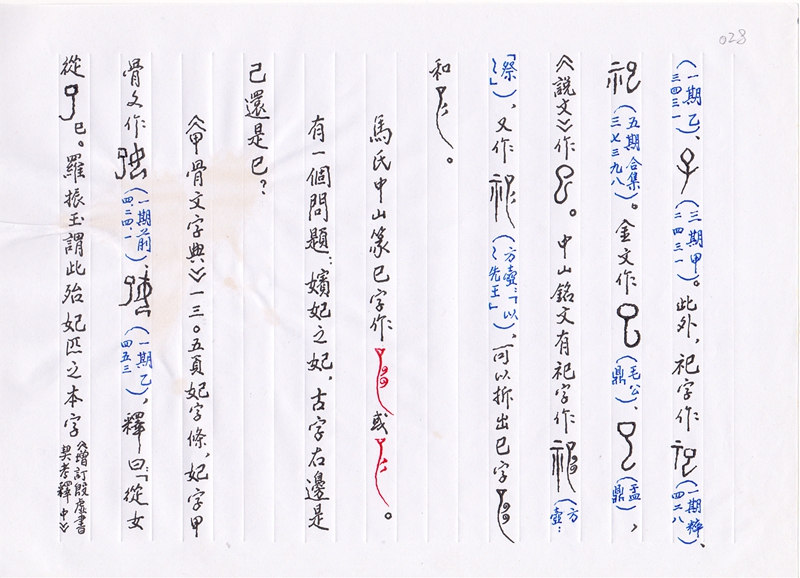 028
（一期乙三四三一）、（三期甲二四三一）。此外，祀字作（一期粹四二八）、
（五期合集三七三九八）。金文作（毛公鼎）、（盂鼎），
《說文》作。中山銘文有祀字作（方壺：
「祭〻」），又作（方壺：「以〻先王」），可以拆出巳字
和。
馬氏中山篆巳字作或。
有一個問題：嬪妃之妃，古字右邊是
己還是巳？
《甲骨文字典》一三〇五頁妃字條，妃字甲
骨文作（一期前四二四、一）、（一期乙四五三），釋曰：「從女
從巳。羅振玉謂此殆妃匹之本字《增訂殷虛書契考釋中》